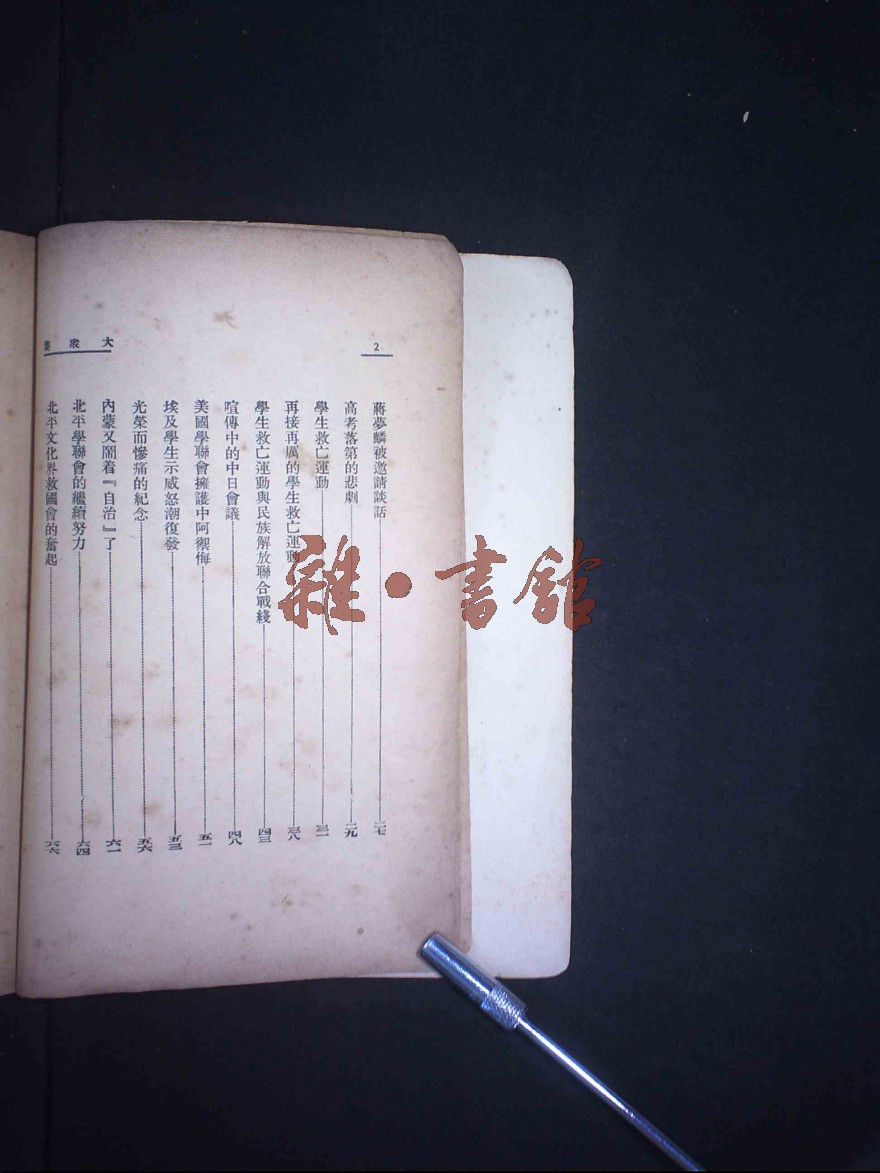 2
大衆
蔣夢麟被邀請談話 二七
高考落第的悲劇 二九
學生救亡運動 三一
再接再厲的學生救亡運動 三八
學生救亡運動與民族解放聯合戰綫 四三
喧傳中的中日會議 四八
美國學聯會擁護中阿禦侮 五一
埃及學生示威怒潮復發 五三
光榮而慘痛的紀念 五六
內蒙又鬧着『自治』了 六一
北平學聯會的繼續努力 六四
北平文化界救國會的奮起 六六
雜·書館